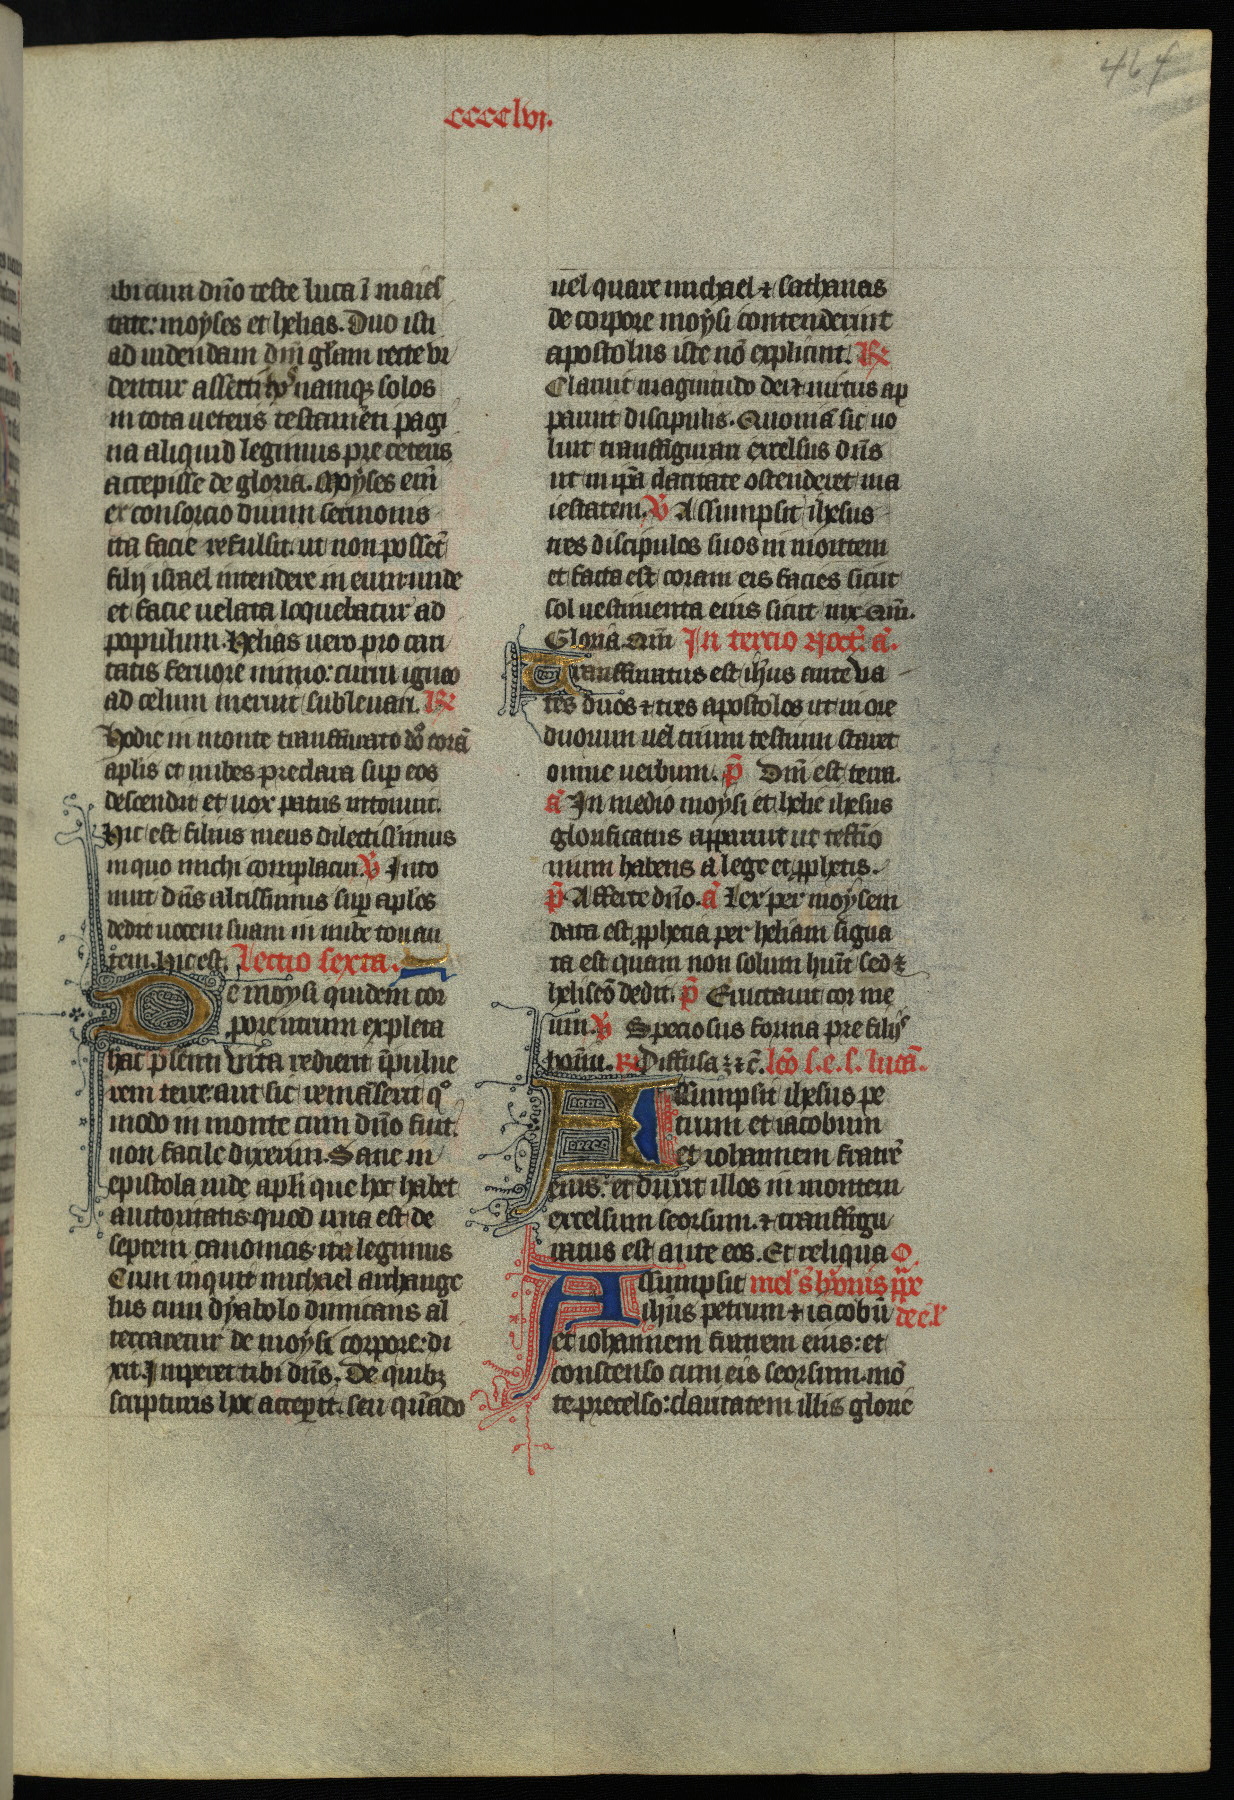 464
cccclvi.
ibi cum dño teste luca ī maies
tate: moyses et helias. Duo isti
ad uidendam dm̄i gl̄am recte vi
dentur asserti hij namq; solos
in tota ueteris testamēti pagi
na aliquid legimus pre ceteris
accepisse de gloria. Moyses eni̅
ex consorcio diuini sermonis
ita facie refulsit. ut non posset
filij israel intendere in eum. unde
et facie uelata loquebatur ad
populum. Helias uero pro cari
tatis feruore nimio: curru igneo
ad celum meruit subleuari. R
Hodie in monte transfigurato dn̄o corā
aplis et nubes preclara sup eos
descendit et uox patris intonuit.
Hic est filius meus dilectissimus
in quo michi complacui. V Into
nuit dn̄s altissimus sup aplōs
dedit uocem suam in nube tonan
tem. Hic est. Lectio sexta.
De moysi quidem cor
pore utrum expleta
hac p̄senti vita redierit i̅ pulue
rem terre: aut sic remāserit q̊
modo in monte cum dño fuit:
non facile dixerim. Sane in
epistola iude apl̄i que hoc habet
auctoritatis quod una est de
septem canonicis. ita legimus
Cum inquit michael archange
lus cum dyabolo dimicans al
tercaretur de moysi corpore: di
xit. Imperet tibi dn̄s. De quibz
scripturis hoc acceperit. seu quādo
uel quare michael ⁊ sathanas
de corpore moysi contenderint
apostolus iste nō explicuit. R
Claruit magnitudo dei ⁊ uirtus ap
paruit discipulis. Quoniā sic uo
luit transfigurari excelsus dn̄s
ut in ip̄a claritate ostenderet ma
iestatem. V Assumpsit ihesus
tres discipulos suos in montem
et facta est coram eis facies sicut
sol uestimenta eius sicut nix. Qm̄.
Gloria. Qm̄ In tercio noct. a.
Transfiguratus est ih̄us ante va
tes duos ⁊ tres apostolos ut in ore
duorum uel trium testium staret
omne uerbum. p̄ Dm̄i est terra.
a In medio moysi et helie ihesus
glorificatus apparuit ut testi̅o
nium habens a lege et p̱phetis.
p̄ Afferte dño. a Lex per moysem
data est p̱phecia per heliam signa
ta est quam non solum hunc̄ sed ⁊
heliseō dedit. p̄ Eructauit cor me
um. V Speciosus forma pre filijs
homi̅u. R Diffusa ⁊ ⁊c̄. lc̄o s. e. s. lucā.
Assumpsit ihesus pe
trum et iacobum
et iohannem fratrē
eius. et duxit illos in montem
excelsum seorsum. ⁊ transfigu
ratus est ante eos. Et reliqua O
Assumpsit
ih̄us petrum ⁊ iacobū
et iohannem fratrem eius: et
conscenso cum eis seorsum. mō
te precelso: claritatem illis glorie